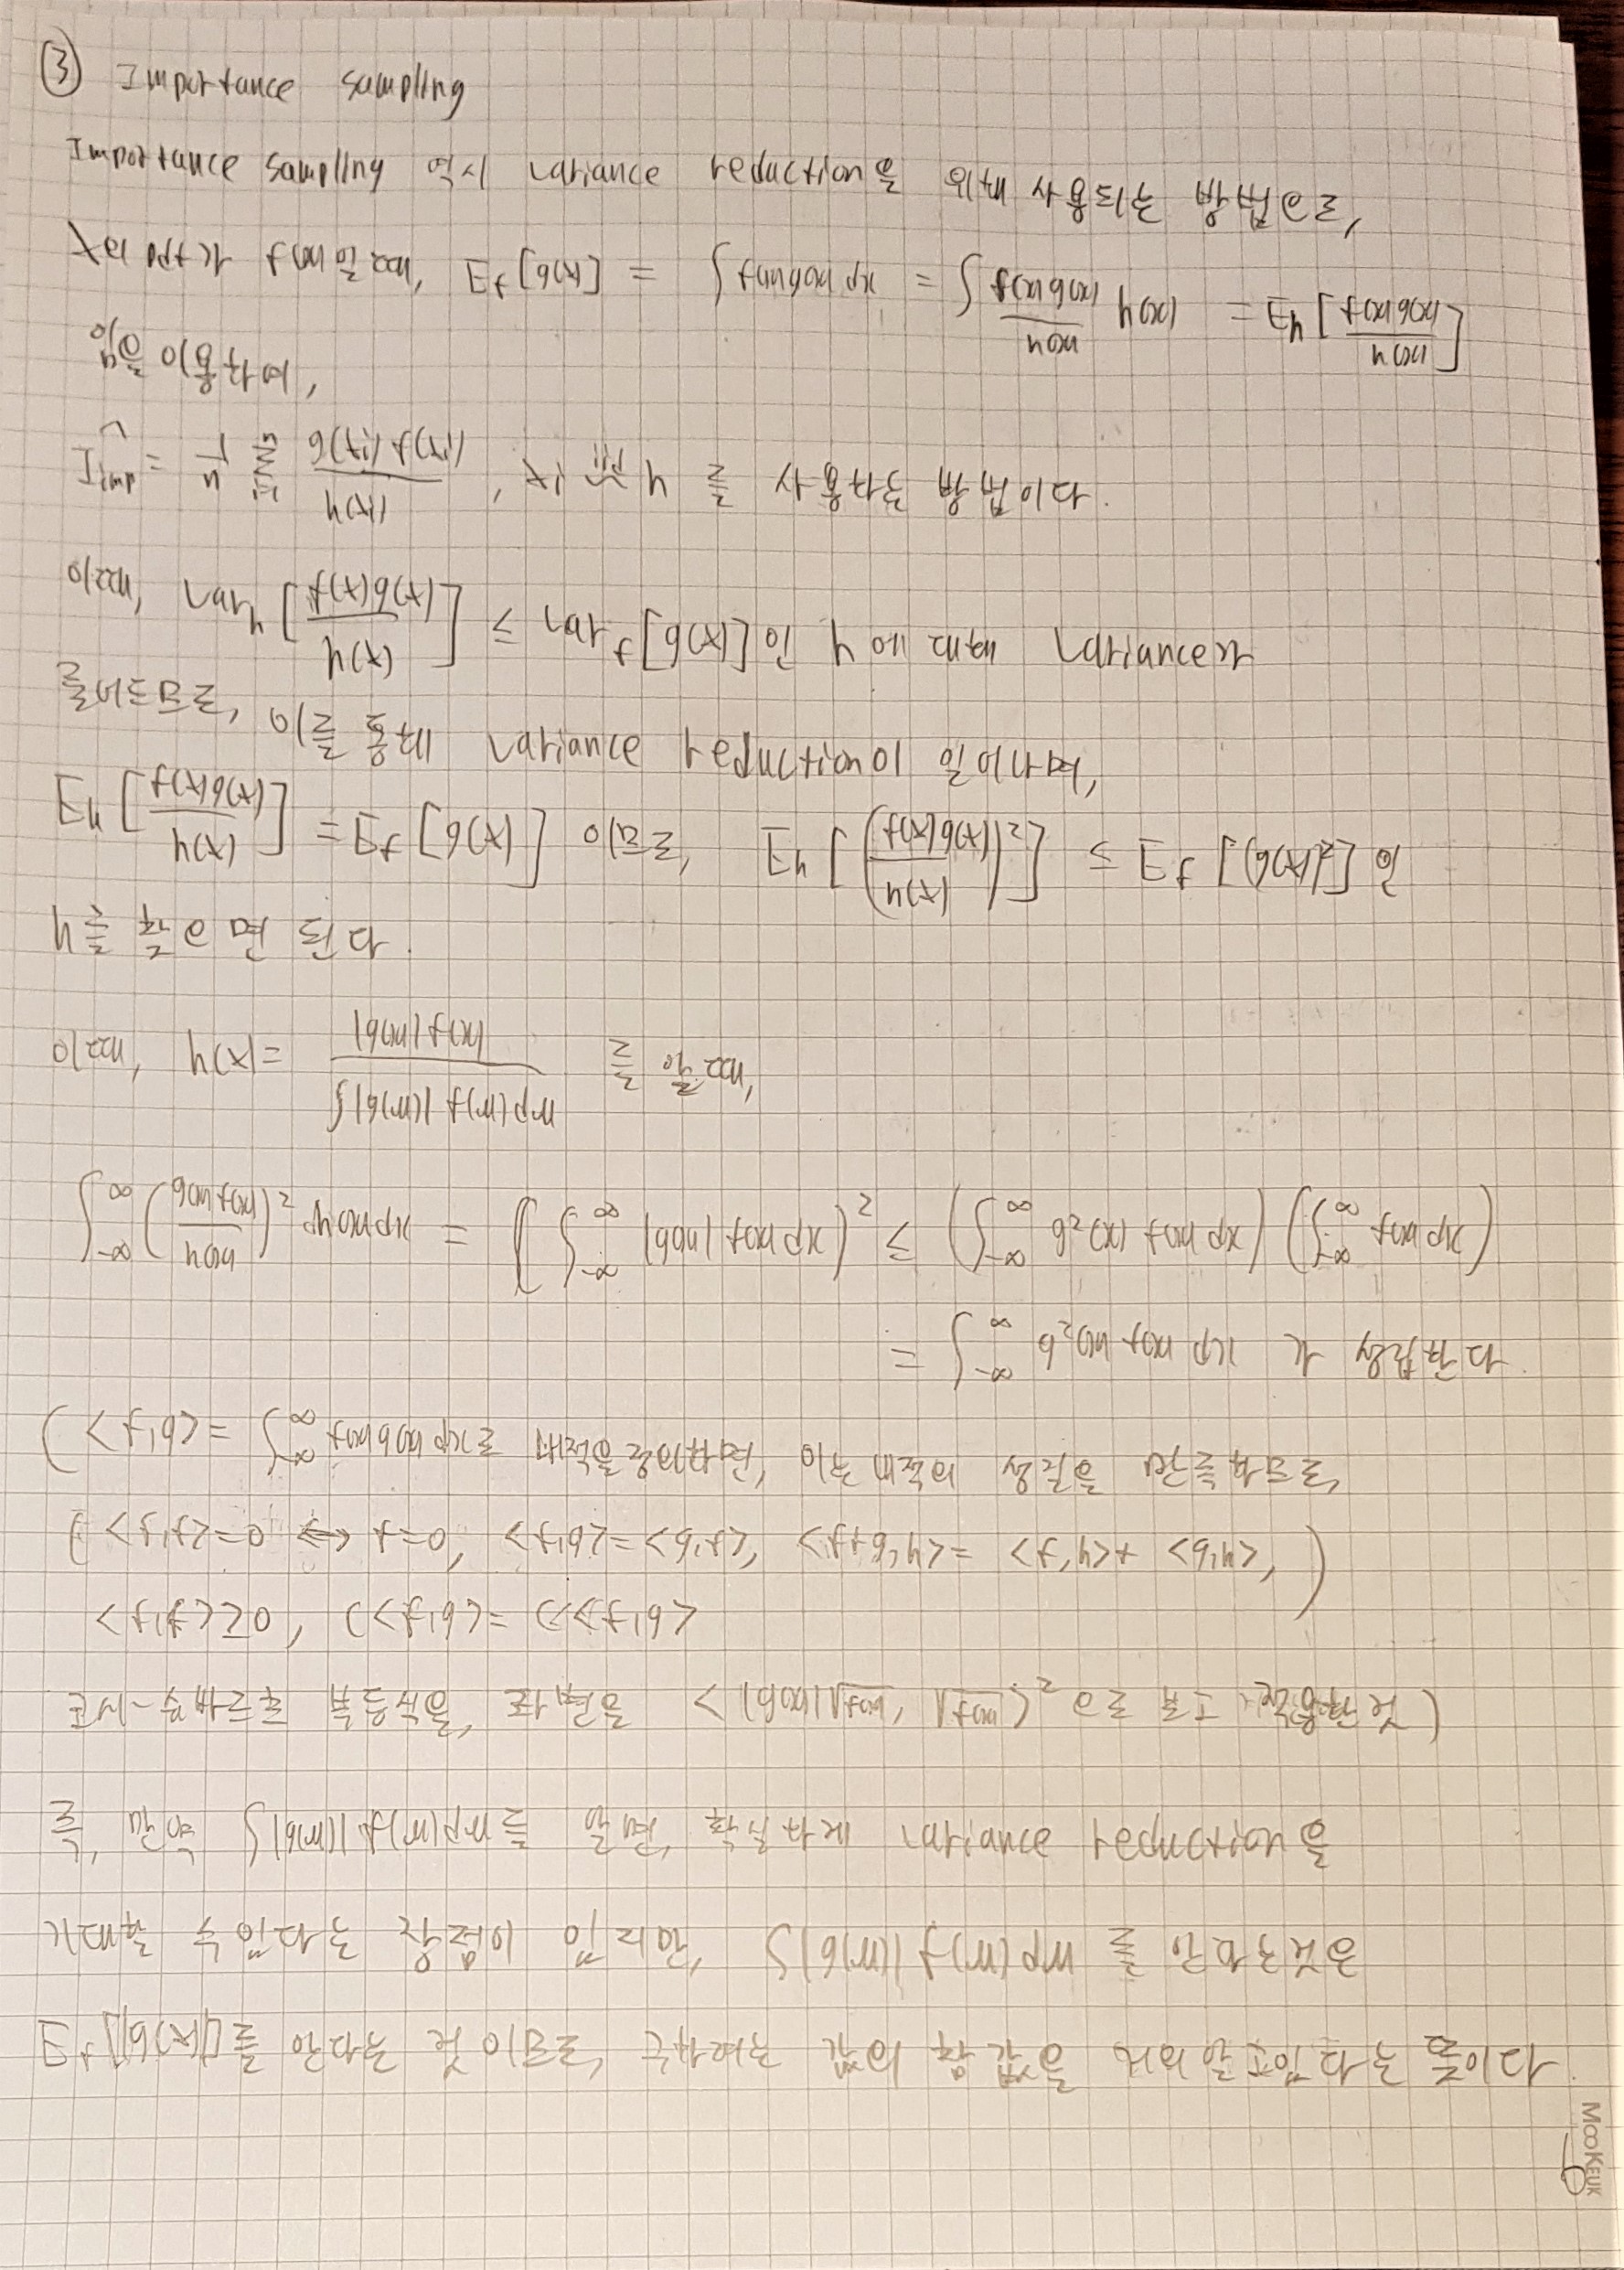 ③ Importance sampling
Importance sampling 역시 variance reduction을 위해 사용되는 방법으로,
X의 pdf가 f(x)일 때, E_f[g(X)] = ∫f(x)g(x)dx = ∫ f(x)g(x)/h(x) h(x) = E_h[f(x)g(x)/h(x)]
임을 이용하여,
Î_imp = 1/n Σ_{i=1}^n g(X_i)f(X_i)/h(X_i), X_i iid~ h 를 사용하는 방법이다.
이때, Var_h[f(X)g(X)/h(X)] ≤ Var_f[g(X)]인 h에 대해 variance가
줄어드므로, 이를 통해 variance reduction이 일어나며,
E_h[f(X)g(X)/h(X)] = E_f[g(X)] 이므로, E_h[(f(X)g(X)/h(X))²] ≤ E_f[(g(X))²]인
h를 찾으면 된다.
이때, h(x) = |g(x)|f(x) / ∫|g(w)|f(w)dw 를 쓸 때,
∫_{-∞}^{∞} (g(x)f(x)/h(x))² h(x)dx = (∫_{-∞}^{∞} |g(x)|f(x)dx)² ≤ (∫_{-∞}^{∞} g²(x)f(x)dx)(∫_{-∞}^{∞} f(x)dx)
= ∫_{-∞}^{∞} g²(x)f(x)dx 가 성립한다.
(<f,g> = ∫_{-∞}^{∞} f(x)g(x)dx로 내적을 정의하면, 이는 내적의 성질을 만족하므로,
( <f,f>=0 ↔ f=0, <f,g>=<g,f>, <f+g,h>= <f,h>+<g,h>, )
<f,f>≥0, c<f,g>= c<f,g>
코시-슈바르츠 부등식을, 좌변을 <|g(x)|√f(x), √f(x)>² 으로 보고 적용한 것)
즉, 만약 ∫|g(w)|f(w)dw를 알면, 확실하게 variance reduction을
기대할 수 있다는 장점이 있지만, ∫|g(w)|f(w)dw 를 안다는 것은
E_f[|g(X)|]를 안다는 것이므로, 구하려는 값의 참값을 알고 있다는 뜻이다.
MOOKEUK